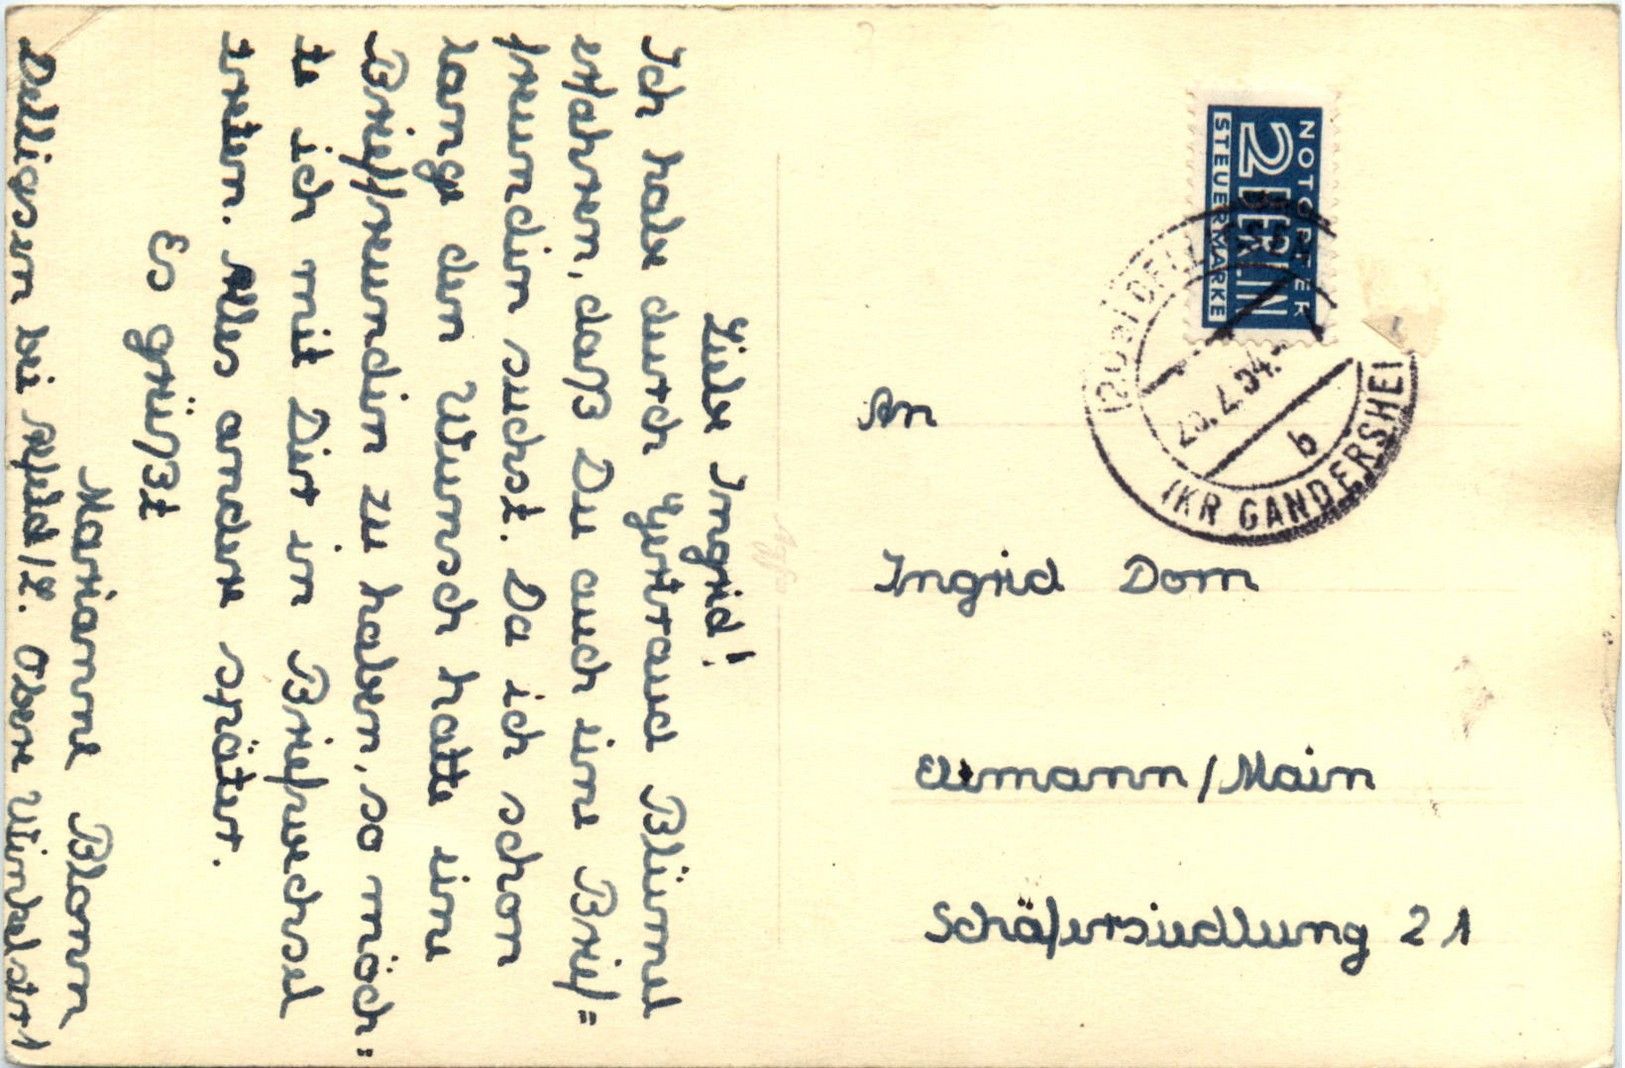 Liebe Ingrid!
Ich habe durch Gertraud Blümel
erfahren, daß Du auch eine Brief=
freundin suchst. Da ich schon
lange den Wunsch hatte eine
Brieffreundin zu haben, so möch=
te ich mit Dir in Briefwechsel
treten. Alles andere später.
Es grüßt
Marianne Blann
Delligsen bei Alfeld/L. Obere Winkelstr 1
NOTOPFER
2 BERLIN
STEUERMARKE
(20a) DELL
.54.
b
(KR GANDERSHEI
An
Ingrid Dorn
Eltmann/Main
Schäfersiedlung 21